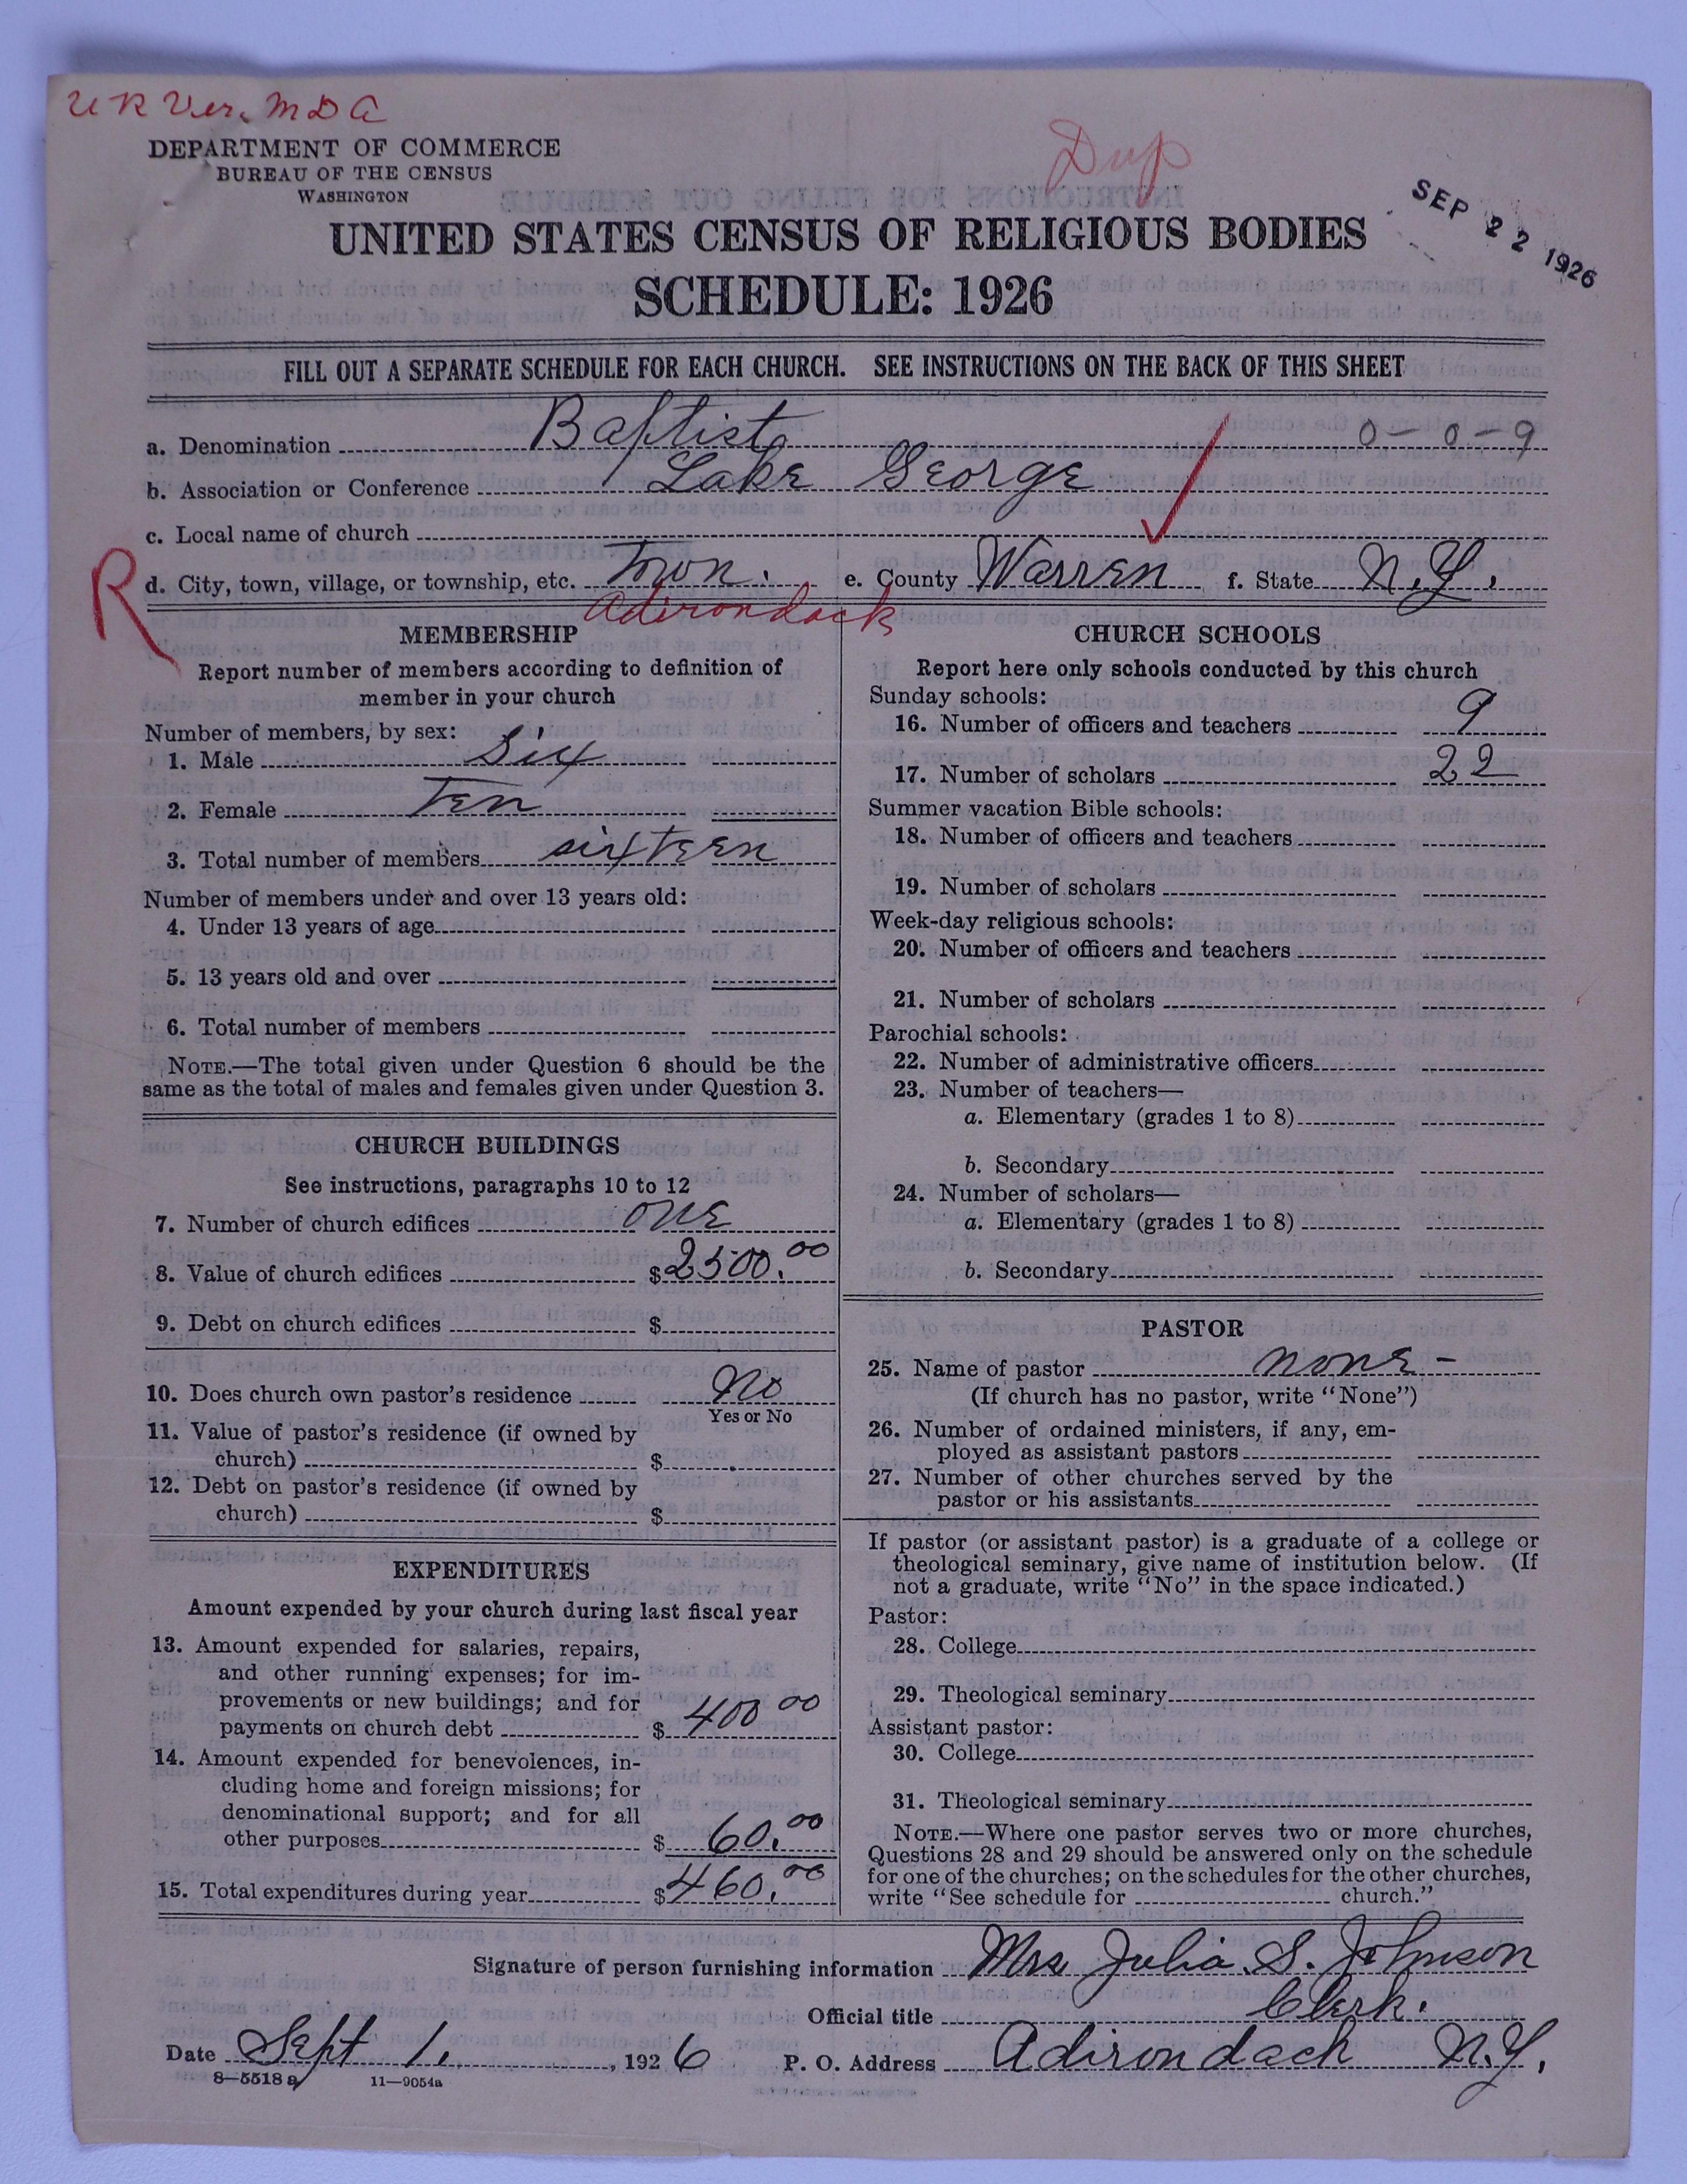 U R Ver. M D A
DEPARTMENT OF COMMERCE
BUREAU OF THE CENSUS
WASHINGTON
Dup
SEP 22 1926
UNITED STATES CENSUS OF RELIGIOUS BODIES
SCHEDULE: 1926
FILL OUT A SEPARATE SCHEDULE FOR EACH CHURCH. SEE INSTRUCTIONS ON THE BACK OF THIS SHEET
a. Denomination Baptist 0-0-9
b. Association or Conference Lake George
c. Local name of church
R
d. City, town, village, or township, etc. Town. e. County Warren f. State N.Y.
Adirondack
MEMBERSHIP
Report number of members according to definition of
member in your church
Number of members, by sex:
1. Male Six
2. Female Ten
3. Total number of members sixteen
Number of members under and over 13 years old:
4. Under 13 years of age
5. 13 years old and over
6. Total number of members
NOTE.—The total given under Question 6 should be the
same as the total of males and females given under Question 3.
CHURCH BUILDINGS
See instructions, paragraphs 10 to 12
7. Number of church edifices one
8. Value of church edifices $2500.00
9. Debt on church edifices $
10. Does church own pastor's residence No
Yes or No
11. Value of pastor's residence (if owned by
church) $
12. Debt on pastor's residence (if owned by
church) $
EXPENDITURES
Amount expended by your church during last fiscal year
13. Amount expended for salaries, repairs,
and other running expenses; for im-
provements or new buildings; and for
payments on church debt $400 00
14. Amount expended for benevolences, in-
cluding home and foreign missions; for
denominational support; and for all
other purposes $60.00
15. Total expenditures during year $460.00
CHURCH SCHOOLS
Report here only schools conducted by this church
Sunday schools:
16. Number of officers and teachers 9
17. Number of scholars 22
Summer vacation Bible schools:
18. Number of officers and teachers
19. Number of scholars
Week-day religious schools:
20. Number of officers and teachers
21. Number of scholars
Parochial schools:
22. Number of administrative officers
23. Number of teachers—
a. Elementary (grades 1 to 8)
b. Secondary
24. Number of scholars—
a. Elementary (grades 1 to 8)
b. Secondary
PASTOR
25. Name of pastor none-
(If church has no pastor, write "None")
26. Number of ordained ministers, if any, em-
ployed as assistant pastors
27. Number of other churches served by the
pastor or his assistants
If pastor (or assistant pastor) is a graduate of a college or
theological seminary, give name of institution below. (If
not a graduate, write "No" in the space indicated.)
Pastor:
28. College
29. Theological seminary
Assistant pastor:
30. College
31. Theological seminary
NOTE.—Where one pastor serves two or more churches,
Questions 28 and 29 should be answered only on the schedule
for one of the churches; on the schedules for the other churches,
write "See schedule for church."
Signature of person furnishing information Mrs Julia S. Johnson
Official title Clerk.
Date Sept 1., 1926 P. O. Address Adirondack N.Y.
8—5518 a 11—9054a